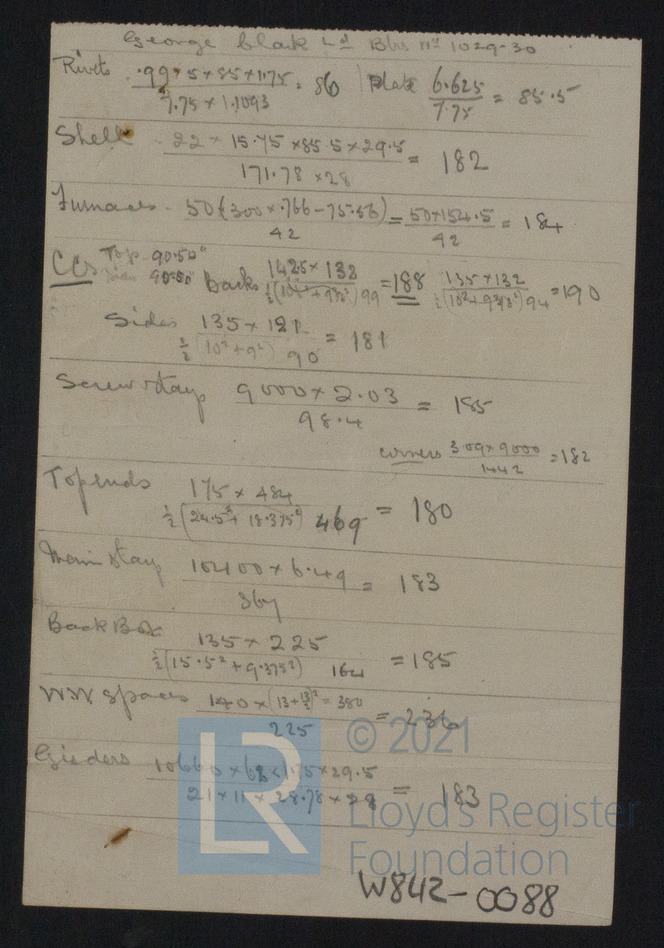 George Clark Ld Blrs No 1029-30
Rivets .99 × 5 × 85 × 1.75 / 7.75 × 1.1093 = 86 Plate 6.625 / 7.75 = 85.5
Shell 22 × 15.75 × 85.5 × 29.5 / 171.78 × 28 = 182
Furnaces - 50(300 × .766 - 75.56) / 42 = 50 × 154.5 / 42 = 184
CCs Top 90.50" 90.50" Backs 142.5 × 132 / ½(10²+9⅜²) 99 = 188 135 × 132 / ½(10²+9⅜²) 94 = 190
Sides 135 × 121 / ½(10²+9²) 90 = 181
Screw stays 9000 × 2.03 / 98.4 = 185
corners 3.09 × 9000 / 144.2 = 182
Top ends 175 × 484 / ½(24.5²+18.375²) 469 = 180
Main stay 10400 × 6.49 / 367 = 183
Back Box 135 × 225 / ½(15.5²+9.375²) 164 = 185
WW spaces 140 × (13+13/2)² = 380 / 225 = 236
Girders 10660 × 62 × 1.75 × 29.5 / 21 × 11 × 28.78 × 28 = 183
LR
© 2021
Lloyd's Register
Foundation
W842-0088